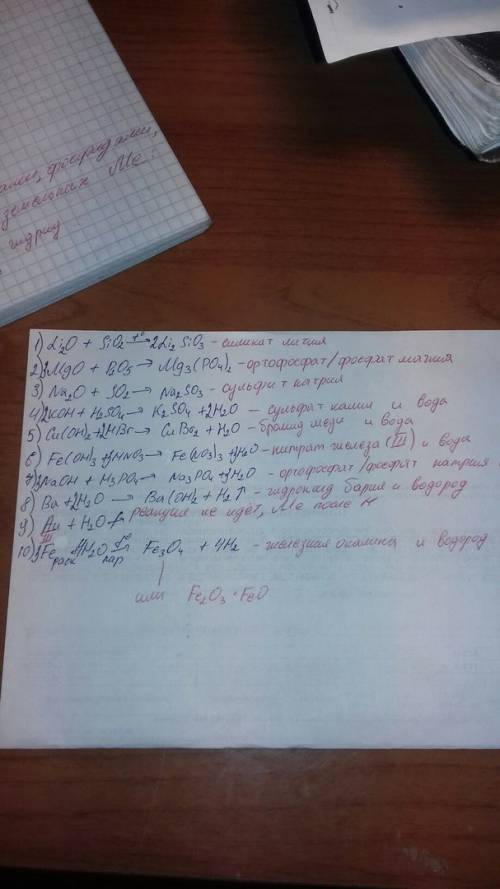 фосфид
Ме.
гидрид
1) Li₂O + SiO₂ t°→ 2Li₂SiO₃ - силикат лития
2) 3MgO + P₂O₅ → Mg₃(PO₄)₂ - ортофосфат/фосфат магния
3) Na₂O + SO₂ → Na₂SO₃ - сульфит натрия
4) 2KOH + H₂SO₄ → K₂SO₄ + 2H₂O - сульфат калия и вода
5) Cu(OH)₂ + 2HBr → CuBr₂ + H₂O - бромид меди и вода
6) Fe(OH)₃ + 3HNO₃ → Fe(NO₃)₃ + 3H₂O - нитрат железа (III) и вода
7) 3NaOH + H₃PO₄ → Na₃PO₄ + 3H₂O - ортофосфат/фосфат натрия
8) Ba + 2H₂O → Ba(OH)₂ + H₂↑ - гидроксид бария и водород
9) Au + H₂O ↛ реакция не идёт, Ме после H
III
10) 3Fe + 4H₂O t°→ Fe₃O₄ + 4H₂ - железная окалина и водород
раск пар
или Fe₂O₃ · FeO